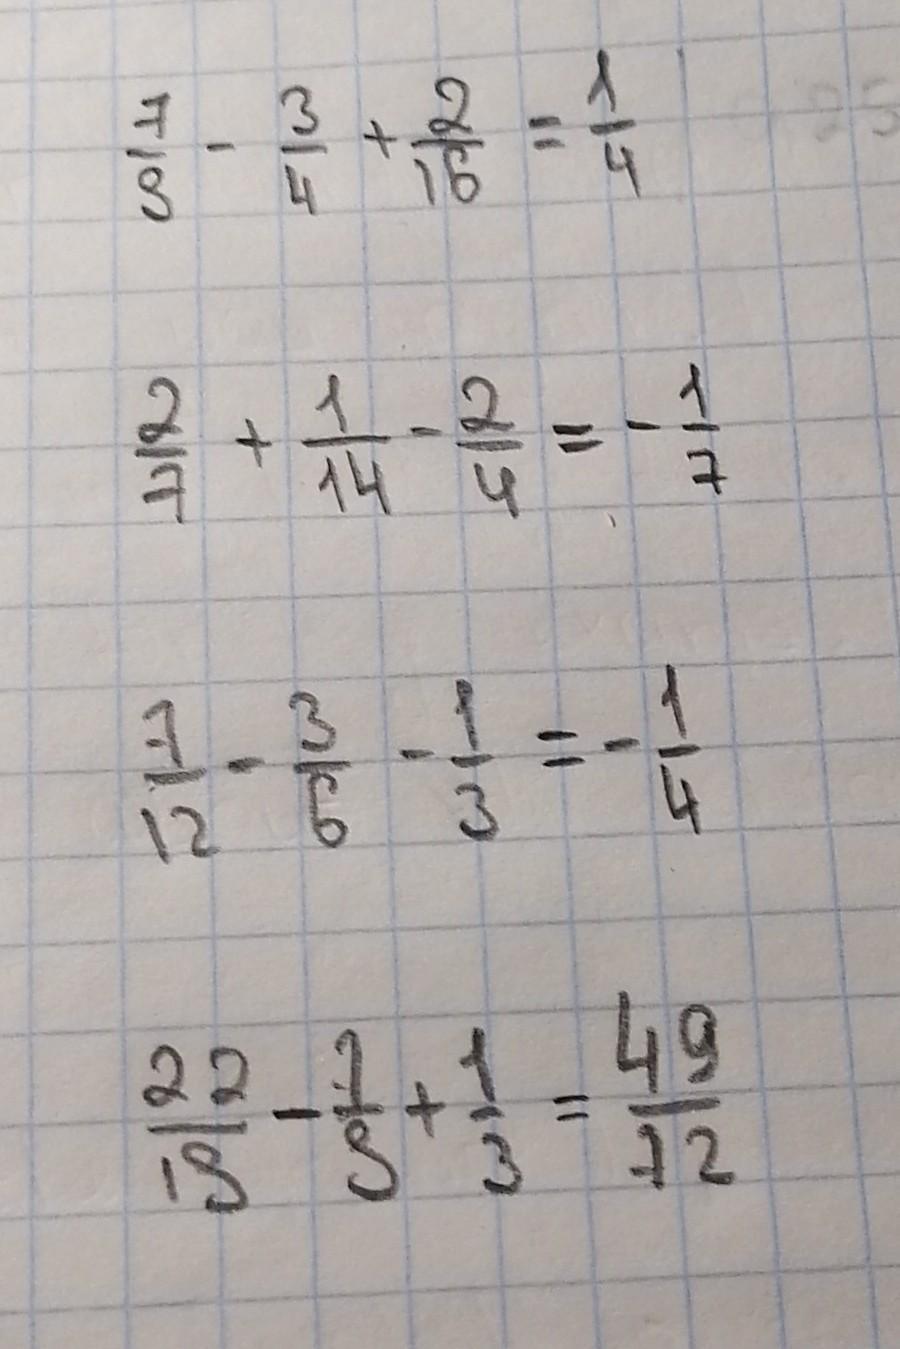 7/8 - 3/4 + 2/16 = 1/4
2/7 + 1/14 - 2/4 = - 1/7
7/12 - 3/6 - 1/3 = - 1/4
22/18 - 7/8 + 1/3 = 49/72